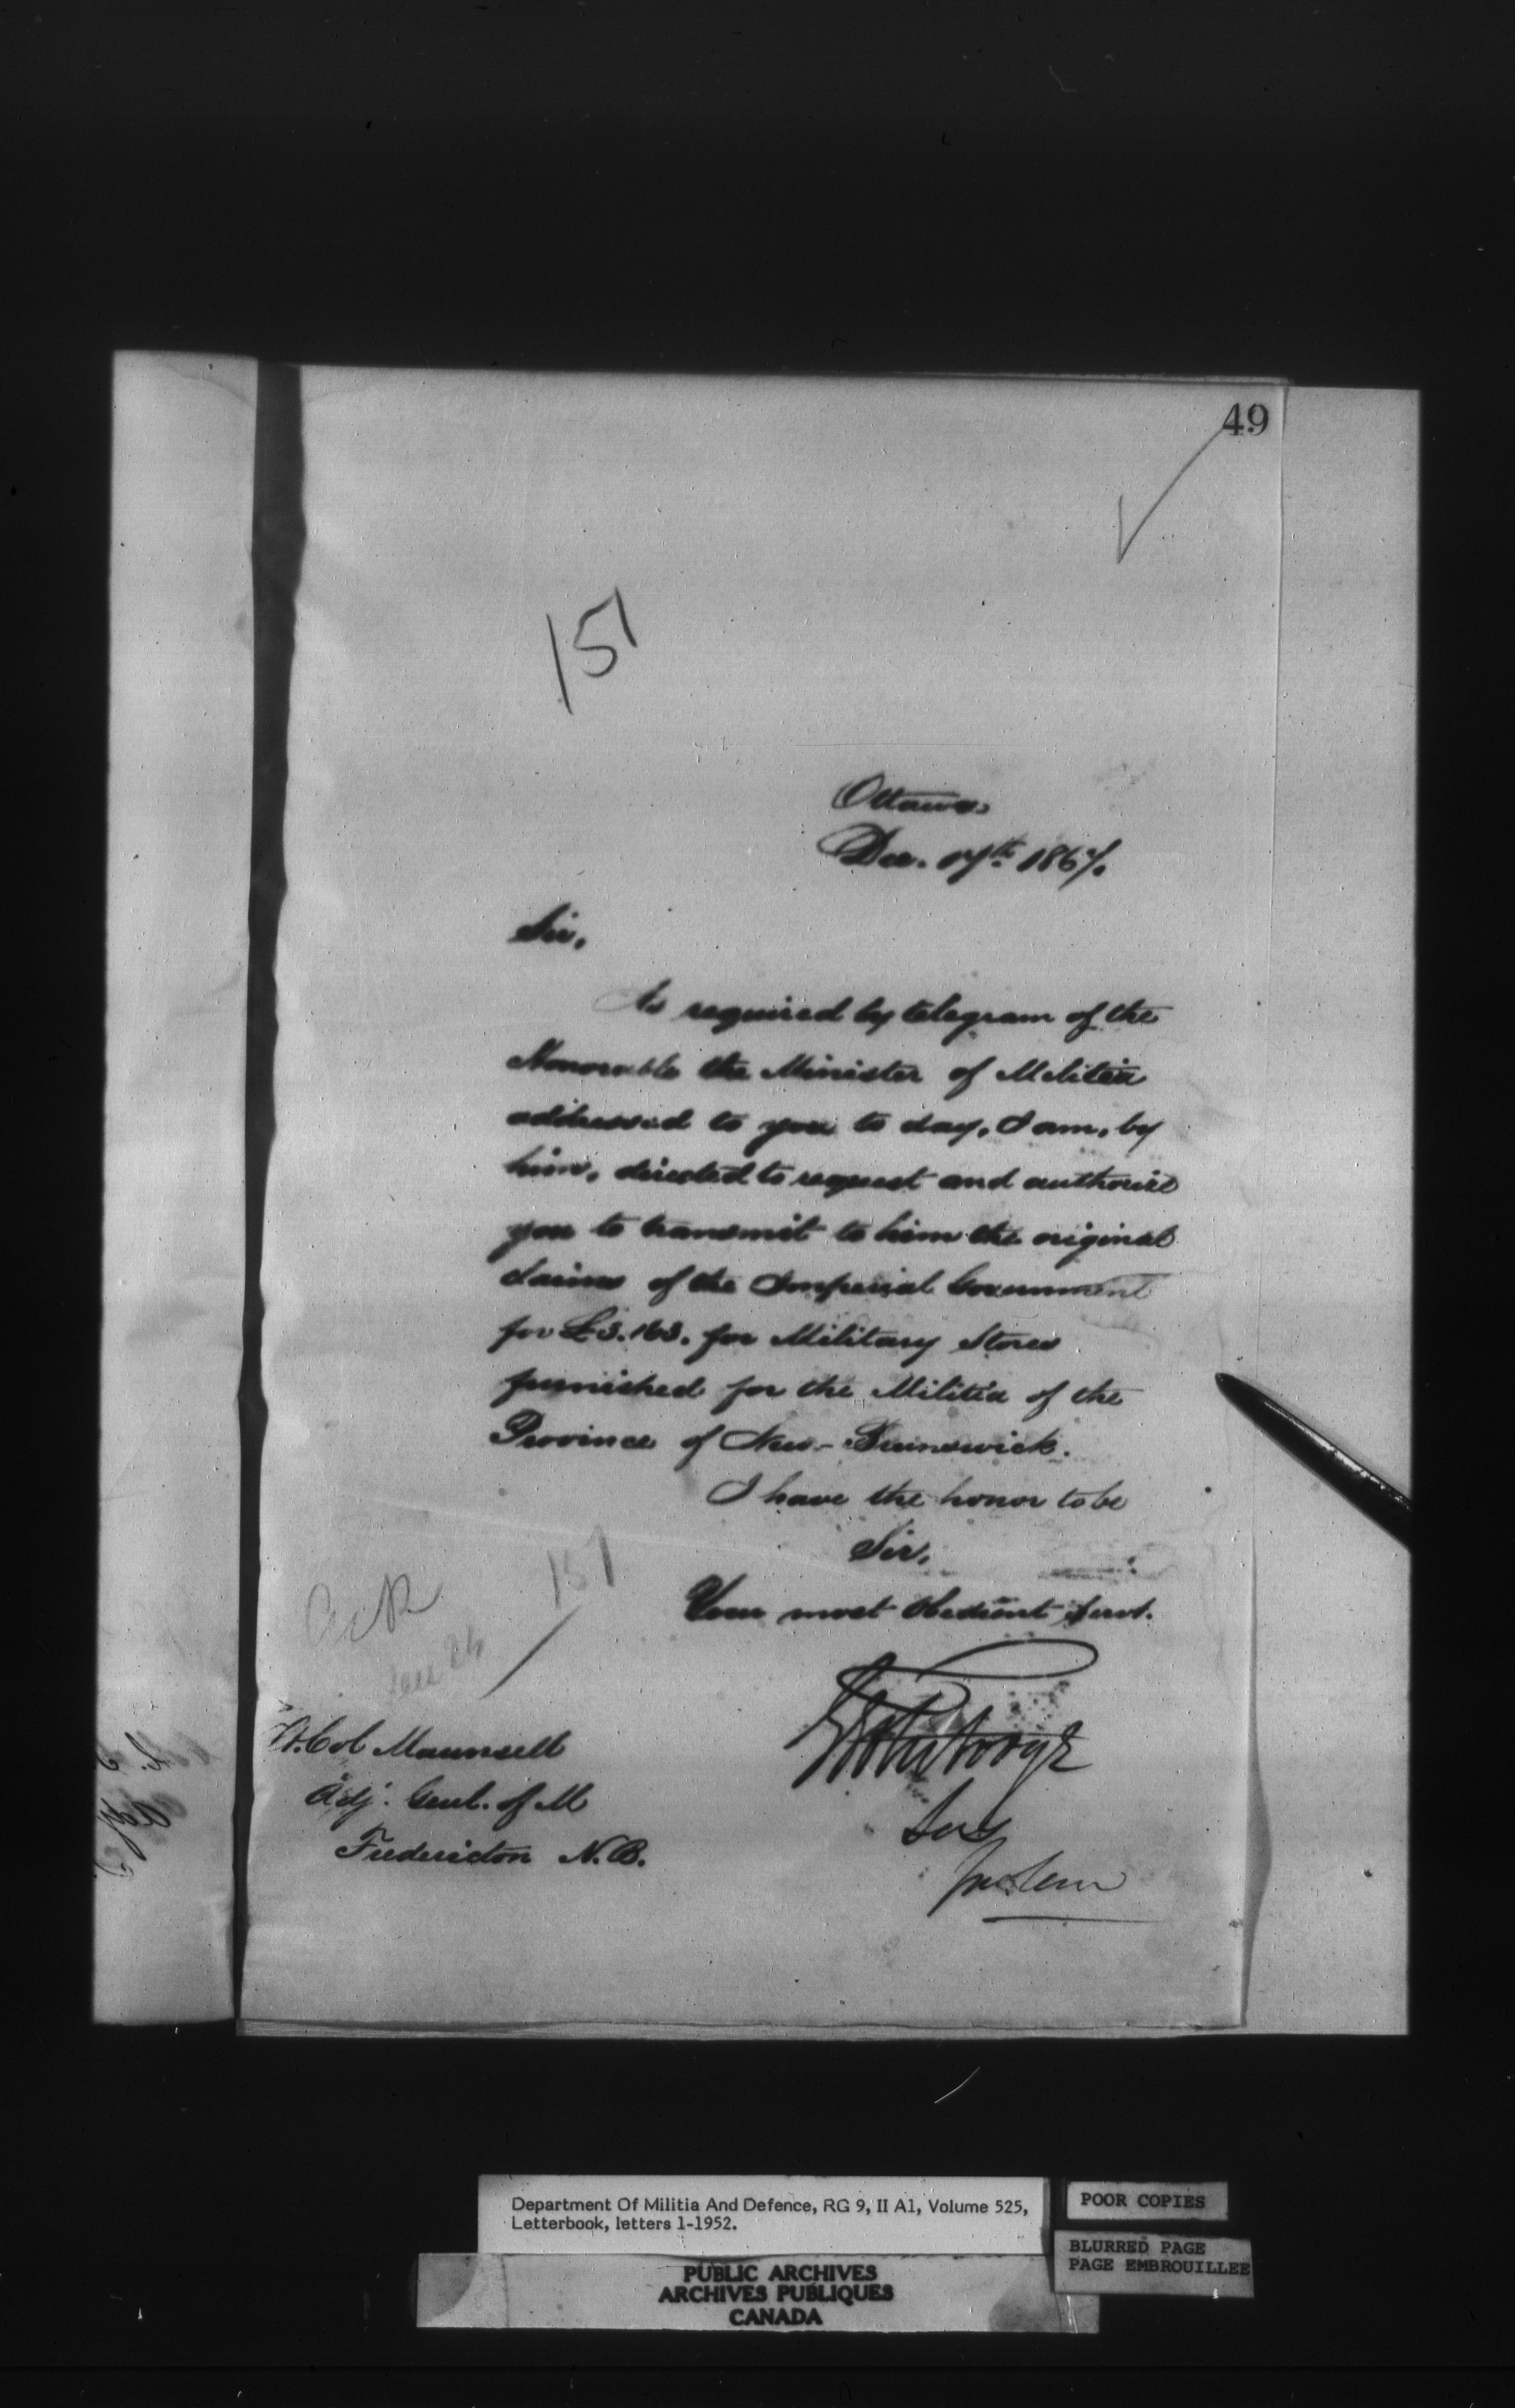 49
151
Ottawa.
Dec. 17th 1867.
Sir,
As required by telegram of the
Honorable the Minister of Militia
addressed to you to day, I am, by
him, directed to request and authorize
you to transmit to him the original
claims of the Imperial Government
for £3.163. for Military Stores
furnished for the Militia of the
Province of New-Brunswick.
I have the honor to be
Sir,
Your most obedient Servt.
151
Lt. Col Maunsell
Adj. Genl. of M
Fredericton N.B.
Department Of Militia And Defence, RG 9, II A1, Volume 525,
Letterbook, letters 1-1952.
POOR COPIES
BLURRED PAGE
PAGE EMBROUILLEE
PUBLIC ARCHIVES
ARCHIVES PUBLIQUES
CANADA